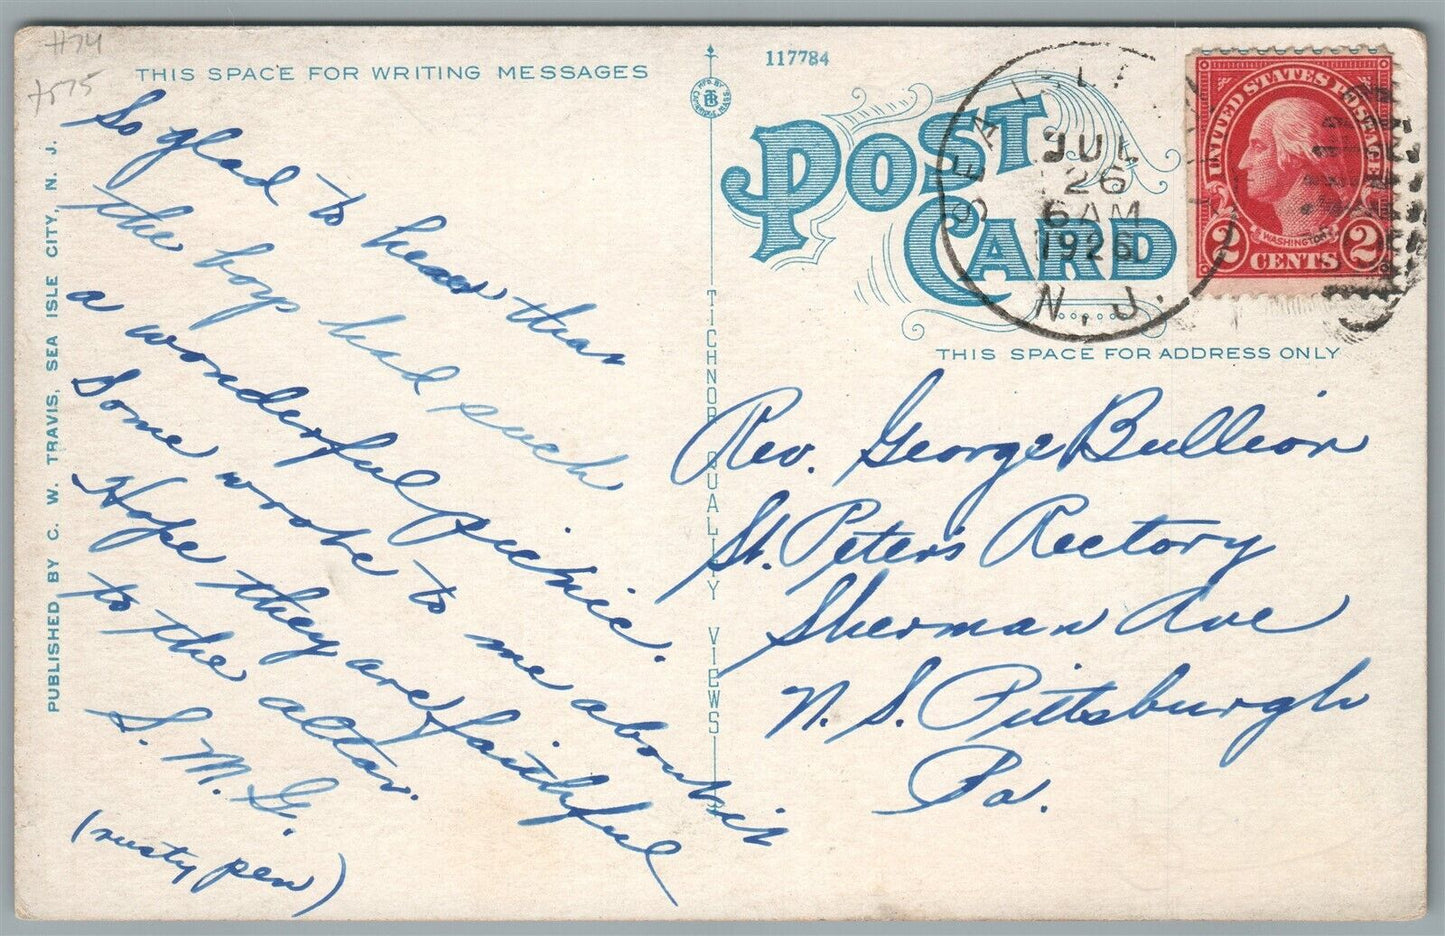 #74
+575
THIS SPACE FOR WRITING MESSAGES
117784
POST CARD
MFD. BY
TB
CAMBRIDGE, MASS.
SEA ISLE
JUL
26
6 AM
1926
N.J.
UNITED STATES POSTAGE
WASHINGTON
2 CENTS 2
THIS SPACE FOR ADDRESS ONLY
PUBLISHED BY C. W. TRAVIS, SEA ISLE CITY, N. J.
TICHNOR QUALITY VIEWS
So glad to hear than
the boys had such
a wonderful picnic.
Some wrote to me about it
Hope they are faithful
to the altar.
S. M. G.
(rusty pen)
Rev. George Bullion
St. Peter's Rectory
Sherman Ave
N. S. Pittsburgh
Pa.